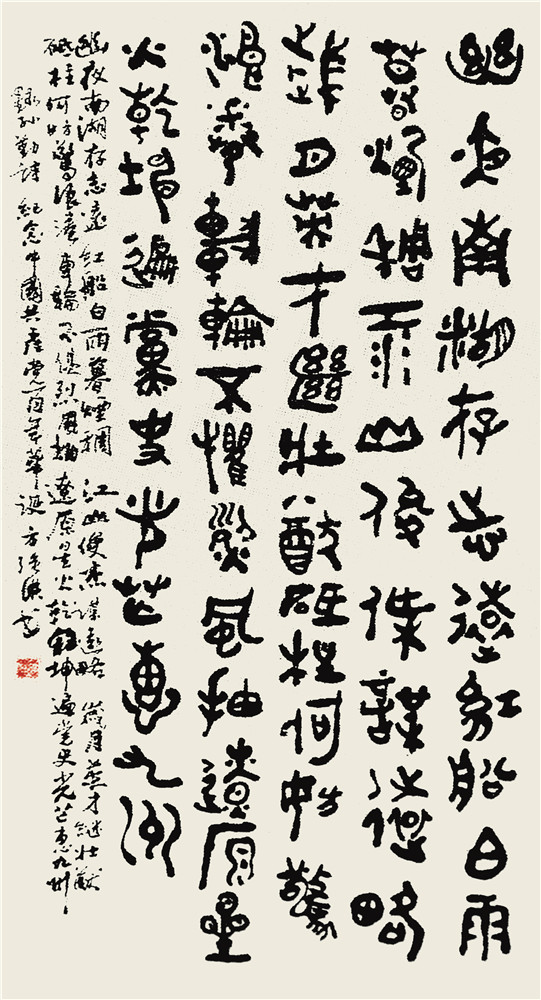 幽夜南湖存志遠紅船白雨
暮煙稠江山俊傑謀遠略
歲月英才繼壯猷砥柱何妨驚
浪捲車輪不懼烈風抽遼原星
火乾坤遍黨史光芒惠九州
幽夜南湖存志遠紅船白雨暮煙稠江山俊杰謀遠略歲月英才継壯猷
砥柱何妨驚浪捲車輪不懼烈風抽遼原星火乾坤遍党史光芒惠九州
錄孙勤詩紀念中國共產党百年華誕方